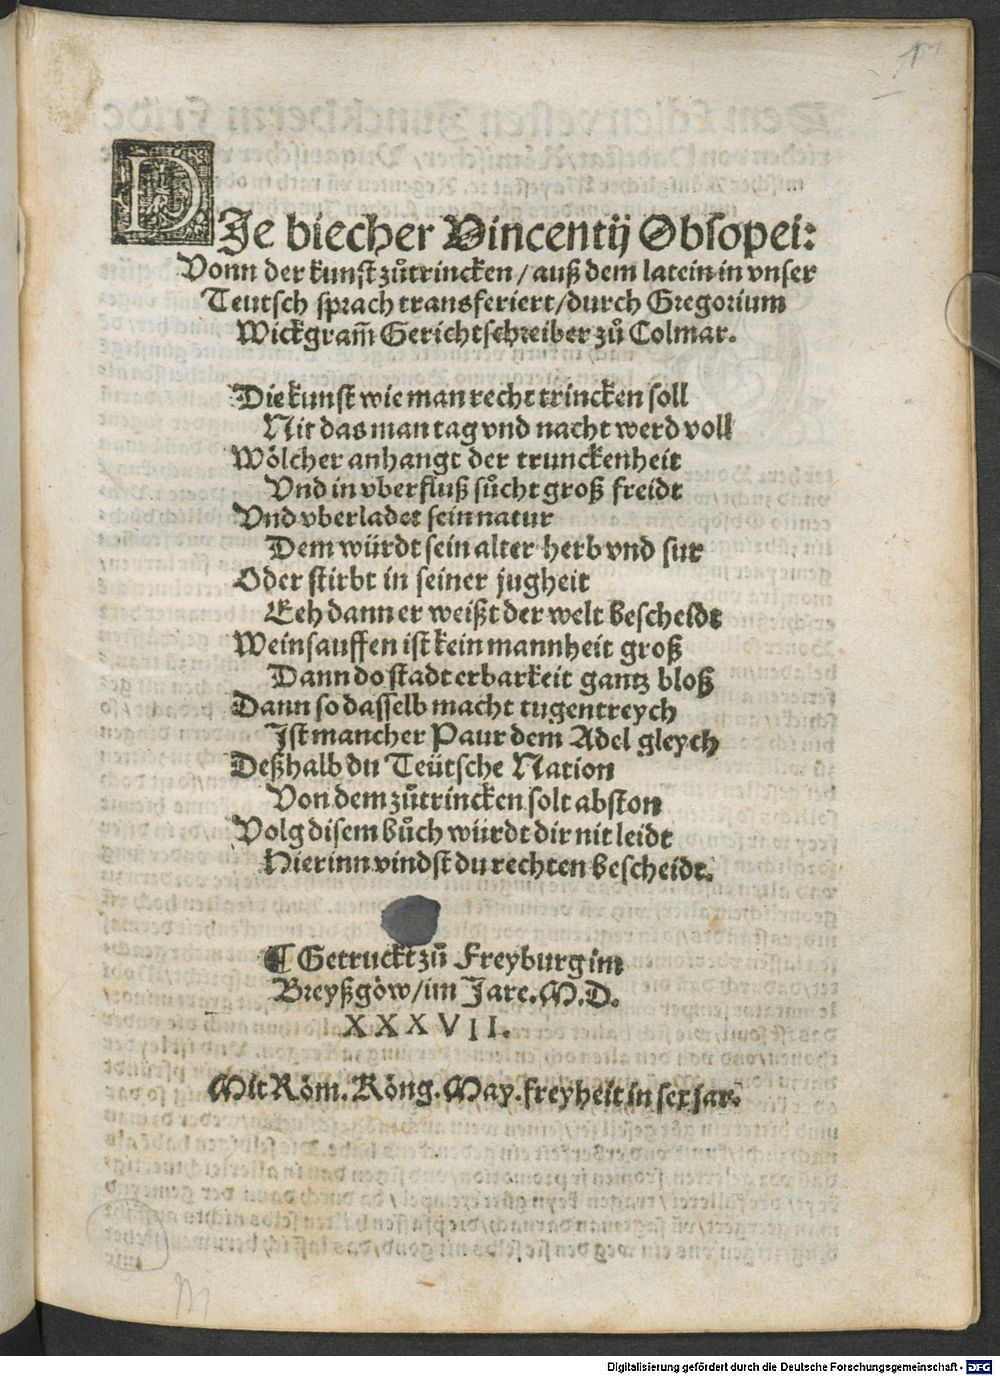 DJe biecher Vincentij Obsopei:
Vonn der kunst zůtrincken / auß dem latein in vnser
Teutsch sprach transferiert / durch Gregorium
Wickgram̃ Gerichtschreiber zů Colmar.
Die kunst wie man recht trincken soll
Nit das man tag vnd nacht werd voll
Wölcher anhangt der trunckenheit
Vnd in vberfluß sůcht groß freidt
Vnd vberladet sein natur
Dem würdt sein alter herb vnd sur
Oder stirbt in seiner jugheit
Eeh dann er weißt der welt bescheidt
Weinsauffen ist kein mannheit groß
Dann do stadt erbarkeit gantz bloß
Dann so dasselb macht tugentreych
Jst mancher Paur dem Adel gleych
Deßhalb du Teütsche Nation
Von dem zůtrincken solt abston
Volg disem bůch würdt dir nit leidt
Hierinn vindst du rechten bescheidt.
¶ Getruckt zů Freyburg im
Breyßgöw / im Jare. M. D.
XXXVII.
Mit Röm. Köng. May. freyheit in sex jar.
Digitalisierung gefördert durch die Deutsche Forschungsgemeinschaft - DFG